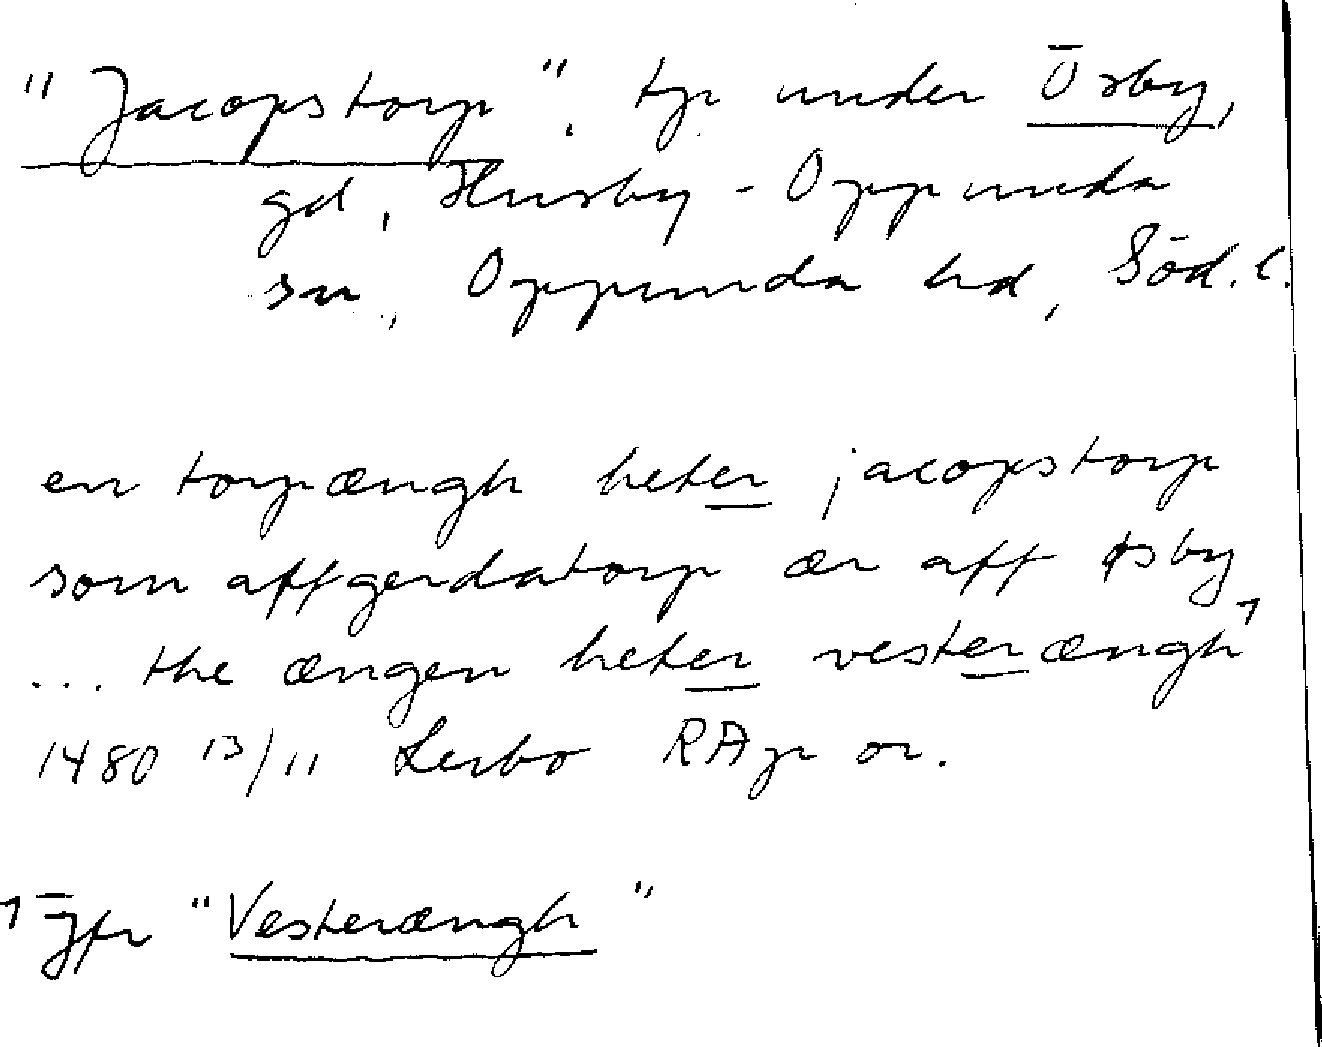 "Jacopstorp", tp under Örsby,
gd, Husby-Oppunda
sn, Oppunda hd, Söd. l.
en torpængh heter jacopstorp
som affgerdatorp ær aff øsby
... the ængen heter vesterængh¹
1480 13/11 Lerbo RAp or.
¹ Jfr "Vesterængh"